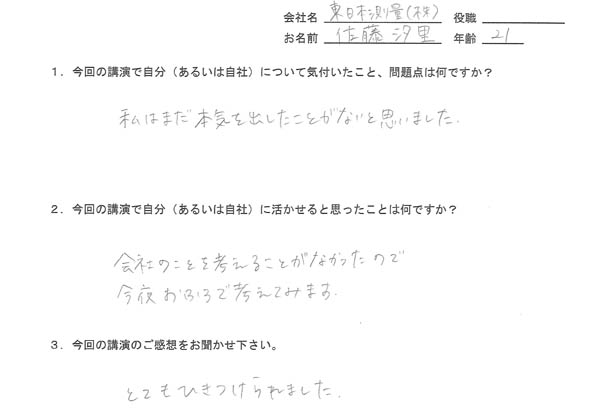 会社名 東日本測量(株) 役職
お名前 佐藤汐里 年齢 21
1．今回の講演で自分（あるいは自社）について気付いたこと、問題点は何ですか？
私はまだ本気を出したことがないと思いました.
2．今回の講演で自分（あるいは自社）に活かせると思ったことは何ですか？
会社のことを考えることがなかったので
今夜おふろで考えてみます.
3．今回の講演のご感想をお聞かせ下さい。
とてもひきつけられました.